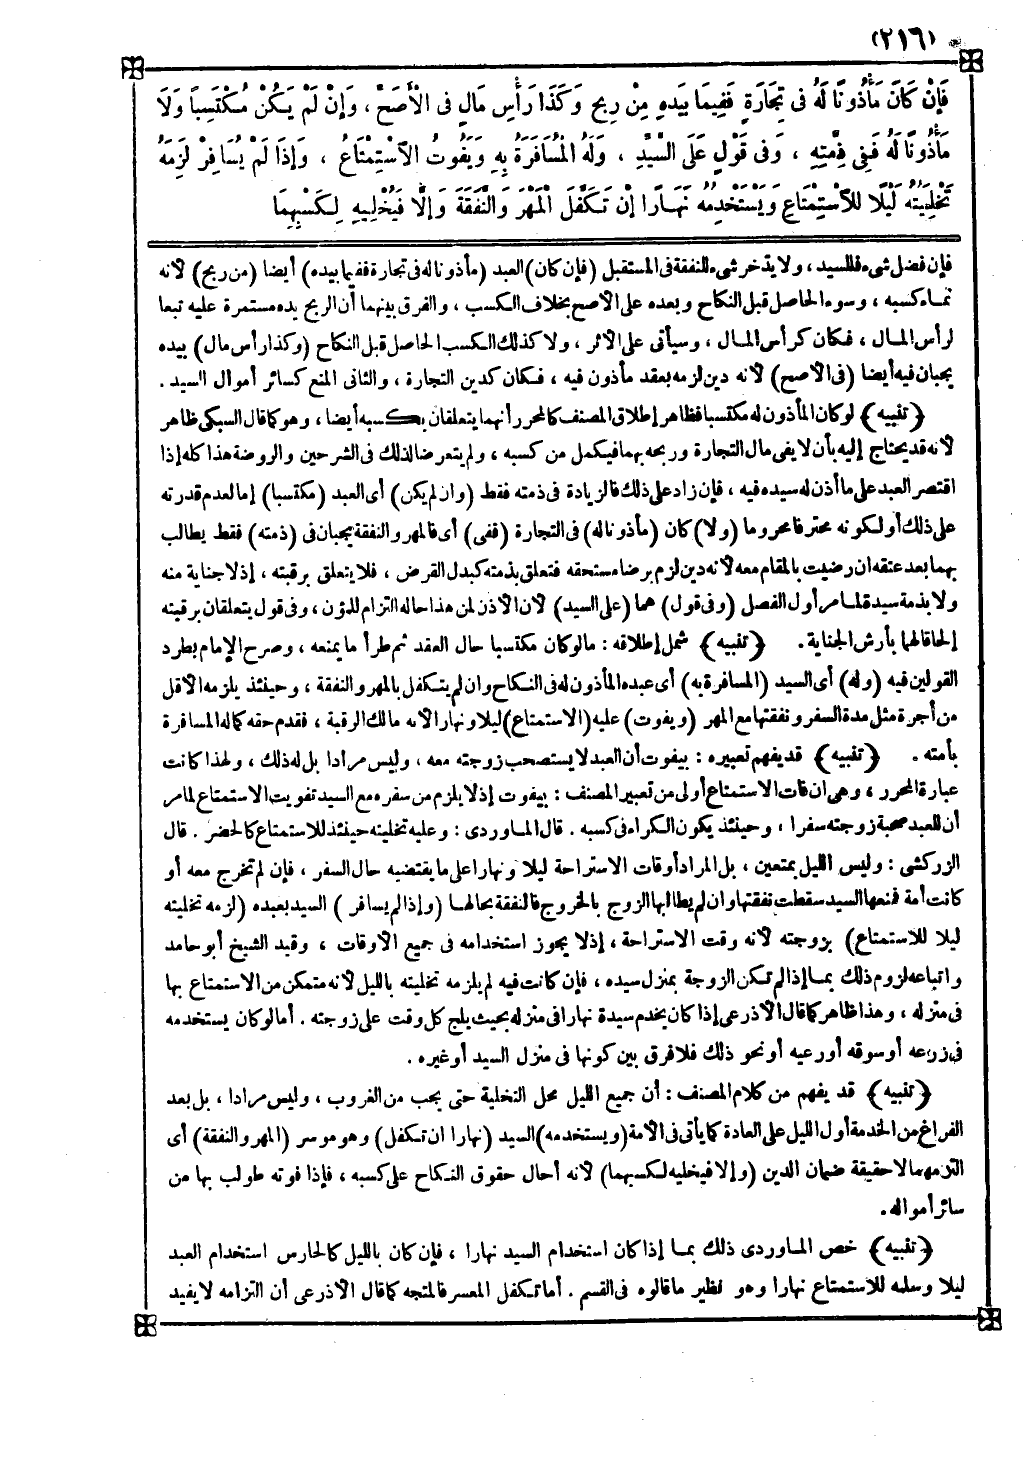 (٢١٦)
فَإِنْ كَانَ مَأْذُونًا لَهُ فِى تِجَارَةٍ فَفِيمَا بِيَدِهِ مِنْ رِبْحٍ وَكَذَا رَأْسِ مَالٍ فِى الْأَصَحِّ ، وَإِنْ لَمْ يَكُنْ مُكْتَسِبًا وَلَا
مَأْذُونًا لَهُ فَفِى ذِمَّتِهِ ، وَفِى قَوْلٍ عَلَى السَّيِّدِ ، وَلَهُ الْمُسَافَرَةُ بِهِ وَيَفُوتُ الِاسْتِمْتَاعُ ، وَإِذَا لَمْ يُسَافِرْ لَزِمَهُ
تَخْلِيَتُهُ لَيْلًا لِلِاسْتِمْتَاعِ وَيَسْتَخْدِمُهُ نَهَارًا إِنْ تَكَفَّلَ الْمَهْرَ وَالنَّفَقَةَ وَإِلَّا فَيُخْلِيهِ لِكَسْبِهِمَا
فإن فضل شىء فللسيد ، ولا يدخر شىء للنفقة فى المستقبل (فإن كان) العبد (مأذونا له فى تجارة ففيما بيده) أيضا (من ربح) لأنه
نماء كسبه ، وسواء الحاصل قبل النكاح وبعده على الأصح بخلاف الكسب ، والفرق بينهما أن الربح يده مستمرة عليه تبعا
لرأس المال ، فكان كرأس المال ، وسيأتى على الأثر ، ولا كذلك الكسب الحاصل قبل النكاح (وكذا رأس مال) بيده
يجبان فيه أيضا (فى الأصح) لأنه دين لزمه بعقد مأذون فيه ، فكان كدين التجارة ، والثانى المنع كسائر أموال السيد .
﴿تنبيه﴾ لو كان المأذون له مكتسبا فظاهر إطلاق المصنف كالمحرر أنهما يتعلقان بكسبه أيضا ، وهو كما قال السبكى ظاهر
لأنه قد يحتاج إليه بأن لا يفى مال التجارة وربحه بهما فيكمل من كسبه ، ولم يتعرضا لذلك فى الشرحين والروضة هذا كله إذا
اقتصر العبد على ما أذن له سيده فيه ، فإن زاد على ذلك فالزيادة فى ذمته فقط (وإن لم يكن) أى العبد (مكتسبا) إما لعدم قدرته
على ذلك أو لكونه محترفا محروما (ولا) كان (مأذونا له) فى التجارة (ففى) أى فالمهر والنفقة يجبان فى (ذمته) فقط يطالب
بهما بعد عتقه ان رضيت بالمقام معه لأنه دين لزم برضا مستحقه فتعلق بذمته كبدل القرض ، فلا يتعلق برقبته ، إذ لا جناية منه
ولا بذمة سيده لما مر أول الفصل (وفى قول) هما (على السيد) لأن الاذن لمن هذا حاله التزام للمؤن ، وفى قول يتعلقان برقبته
إلحاقا لهما بأرش الجناية . ﴿تنبيه﴾ شمل إطلاقه : ما لو كان مكتسبا حال العقد ثم طرأ ما يمنعه ، وصرح الإمام بطرد
القولين فيه (وله) أى السيد (المسافرة به) أى عبده المأذون له فى النكاح وإن لم يتكفل بالمهر والنفقة ، وحينئذ يلزمه الأقل
من أجرة مثل مدة السفر ونفقتها مع المهر (ويفوت) عليه (الاستمتاع) ليلا ونهارا لأنه مالك الرقبة ، فقدم حقه كما له المسافرة
بأمته . ﴿تنبيه﴾ قد يفهم تعبيره : بيفوت أن العبد لا يستصحب زوجته معه ، وليس مرادا بل له ذلك ، ولهذا كانت
عبارة المحرر ، وهى ان فات الاستمتاع أولى من تعبير المصنف : بيفوت إذ لا يلزم من سفره مع السيد تفويت الاستمتاع لما مر
أن للعبد صحبة زوجته سفرا ، وحينئذ يكون الكراء فى كسبه . قال الماوردى : وعليه تخليته حينئذ للاستمتاع كالحضر . قال
الزركشى : وليس الليل بمتعين ، بل المراد أوقات الاستراحة ليلا ونهارا على ما يقتضيه حال السفر ، فإن لم تخرج معه أو
كانت أمة فمنعها السيد سقطت نفقتها وان لم يطالبها الزوج بالخروج فالنفقة بحالها (وإذا لم يسافر) السيد بعبده (لزمه تخليته
ليلا للاستمتاع) بزوجته لأنه وقت الاستراحة ، إذ لا يجوز استخدامه فى جميع الأوقات ، وقيد الشيخ أبو حامد
واتباعه لزوم ذلك بما إذا لم تكن الزوجة بمنزل سيده ، فإن كانت فيه لم يلزمه تخليته بالليل لأنه متمكن من الاستمتاع بها
فى منزله ، وهذا ظاهر كما قال الأذرعى إذا كان يخدم سيده نهارا فى منزله بحيث يلج كل وقت على زوجته . أما لو كان يستخدمه
فى زرعه أو سوقه أو رعيه أو نحو ذلك فلا فرق بين كونها فى منزل السيد أو غيره .
﴿تنبيه﴾ قد يفهم من كلام المصنف : أن جميع الليل محل التخلية حتى يجب من الغروب ، وليس مرادا ، بل بعد
الفراغ من الخدمة أول الليل على العادة كما يأتى فى الأمة (ويستخدمه) السيد (نهارا ان تكفل) وهو موسر (المهر والنفقة) أى
التزمهما لا حقيقة ضمان الدين (وإلا فيخليه لكسبهما) لأنه أحال حقوق النكاح على كسبه ، فإذا فوته طولب بها من
سائر أمواله .
﴿تنبيه﴾ خص الماوردى ذلك بما إذا كان استخدام السيد نهارا ، فإن كان بالليل كالحارس استخدام العبد
ليلا وسلمه للاستمتاع نهارا وهو نظير ما قالوه فى القسم . أما تكفل المعسر فالمتجه كما قال الأذرعى أن التزامه لا يفيد